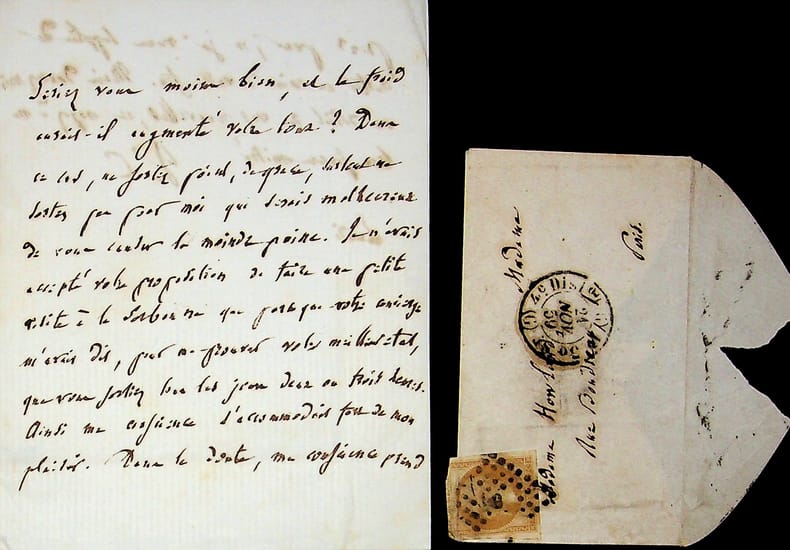 Seriez vous moins bien, et le froid
auroit-il augmenté votre toux ? Dans
ce cas, ne sortez point, de grace, surtout ne
sortez pas pour moi qui serois malheureux
de vous causer la moindre peine. Je n'avais
accepté votre proposition de faire une petite
visite à la Sorbonne que parce que votre
m'avais dit, pour me prouver votre meilleur état,
que vous sortiez tous les jours deux ou trois heures.
Ainsi ma conscience s'accommodoit fort de mon
plaisir. Dans le doute, ma conscience prend
Madame
Madame
Rue
Paris.
4e DIST.
24
NOV
59